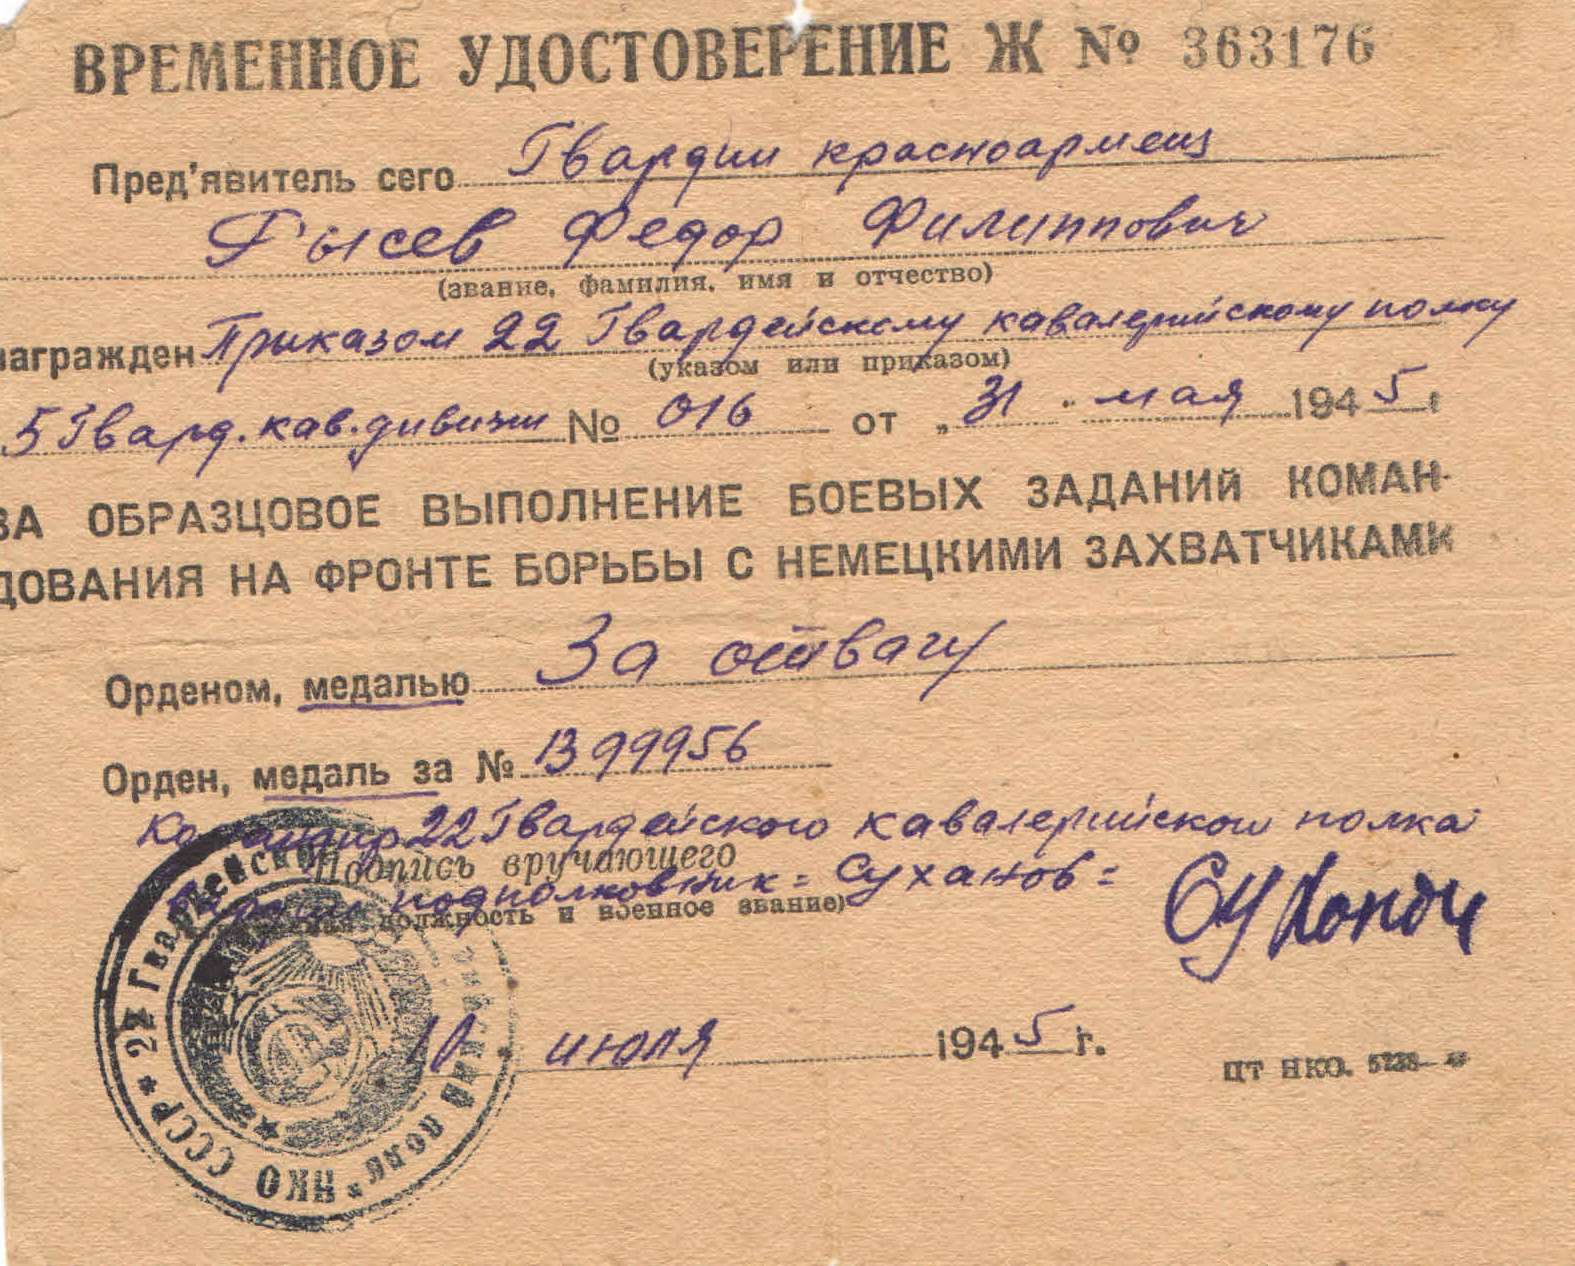 ВРЕМЕННОЕ УДОСТОВЕРЕНИЕ Ж № 363176
Пред'явитель сего Гвардии красноармеец
Гысев Федор Филиппович
(звание, фамилия, имя и отчество)
награжден Приказом 22 Гвардейскому кавалерийскому полку
(указом или приказом)
5 Гвард. кав. дивизии № 016 от „31" мая 1945 г
ЗА ОБРАЗЦОВОЕ ВЫПОЛНЕНИЕ БОЕВЫХ ЗАДАНИЙ КОМАН-
ДОВАНИЯ НА ФРОНТЕ БОРЬБЫ С НЕМЕЦКИМИ ЗАХВАТЧИКАМИ
Орденом, медалью За отвагу
Орден, медаль за № 1399956
Командир 22 Гвардейского кавалерийского полка
Подпись вручающего
Гвардии подполковник = Суханов =
должность и военное звание)
Суханов
10 июля 1945 г.
ЦТ НКО.
22 Гвардейский полк * НКО СССР *